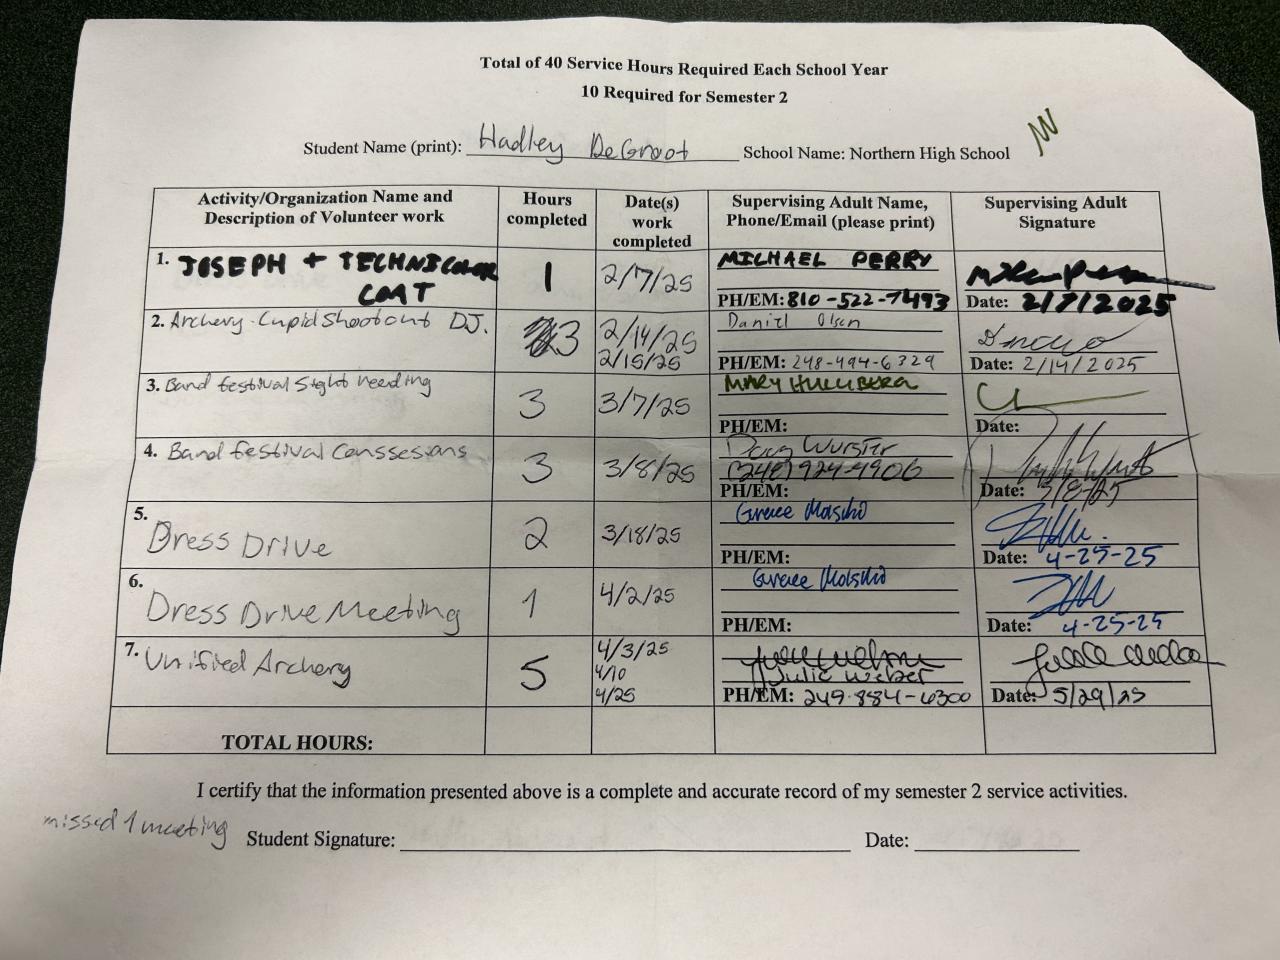 Total of 40 Service Hours Required Each School Year
10 Required for Semester 2
Student Name (print): Hadley DeGroot School Name: Northern High School
Activity/Organization Name and Description of Volunteer work
Hours completed
Date(s) work completed
Supervising Adult Name, Phone/Email (please print)
Supervising Adult Signature
1. JOSEPH + TECHNICOLOR COAT
1
2/7/25
MICHAEL PERRY
PH/EM: 810-522-7493
Date: 2/7/2025
2. Archery-Cupid Shootout DJ.
3
2/14/25
2/15/25
Daniel Olsen
PH/EM: 248-494-6329
Date: 2/14/2025
3. Band festival Sight
3
3/7/25
MARY
PH/EM:
Date:
4. Band festival Conssesians
3
3/8/25
Doug Wurster
(248) 924-4906
PH/EM:
Date: 3/8/25
5. Dress Drive
2
3/18/25
PH/EM:
Date: 4-25-25
6. Dress Drive Meeting
1
4/2/25
PH/EM:
Date: 4-25-25
7. Unified Archery
5
4/3/25
4/10
4/25
Julie Weber
PH/EM: 249-884-6300
Date: 5/29/25
TOTAL HOURS:
I certify that the information presented above is a complete and accurate record of my semester 2 service activities.
missed 1 meeting
Student Signature: Date: